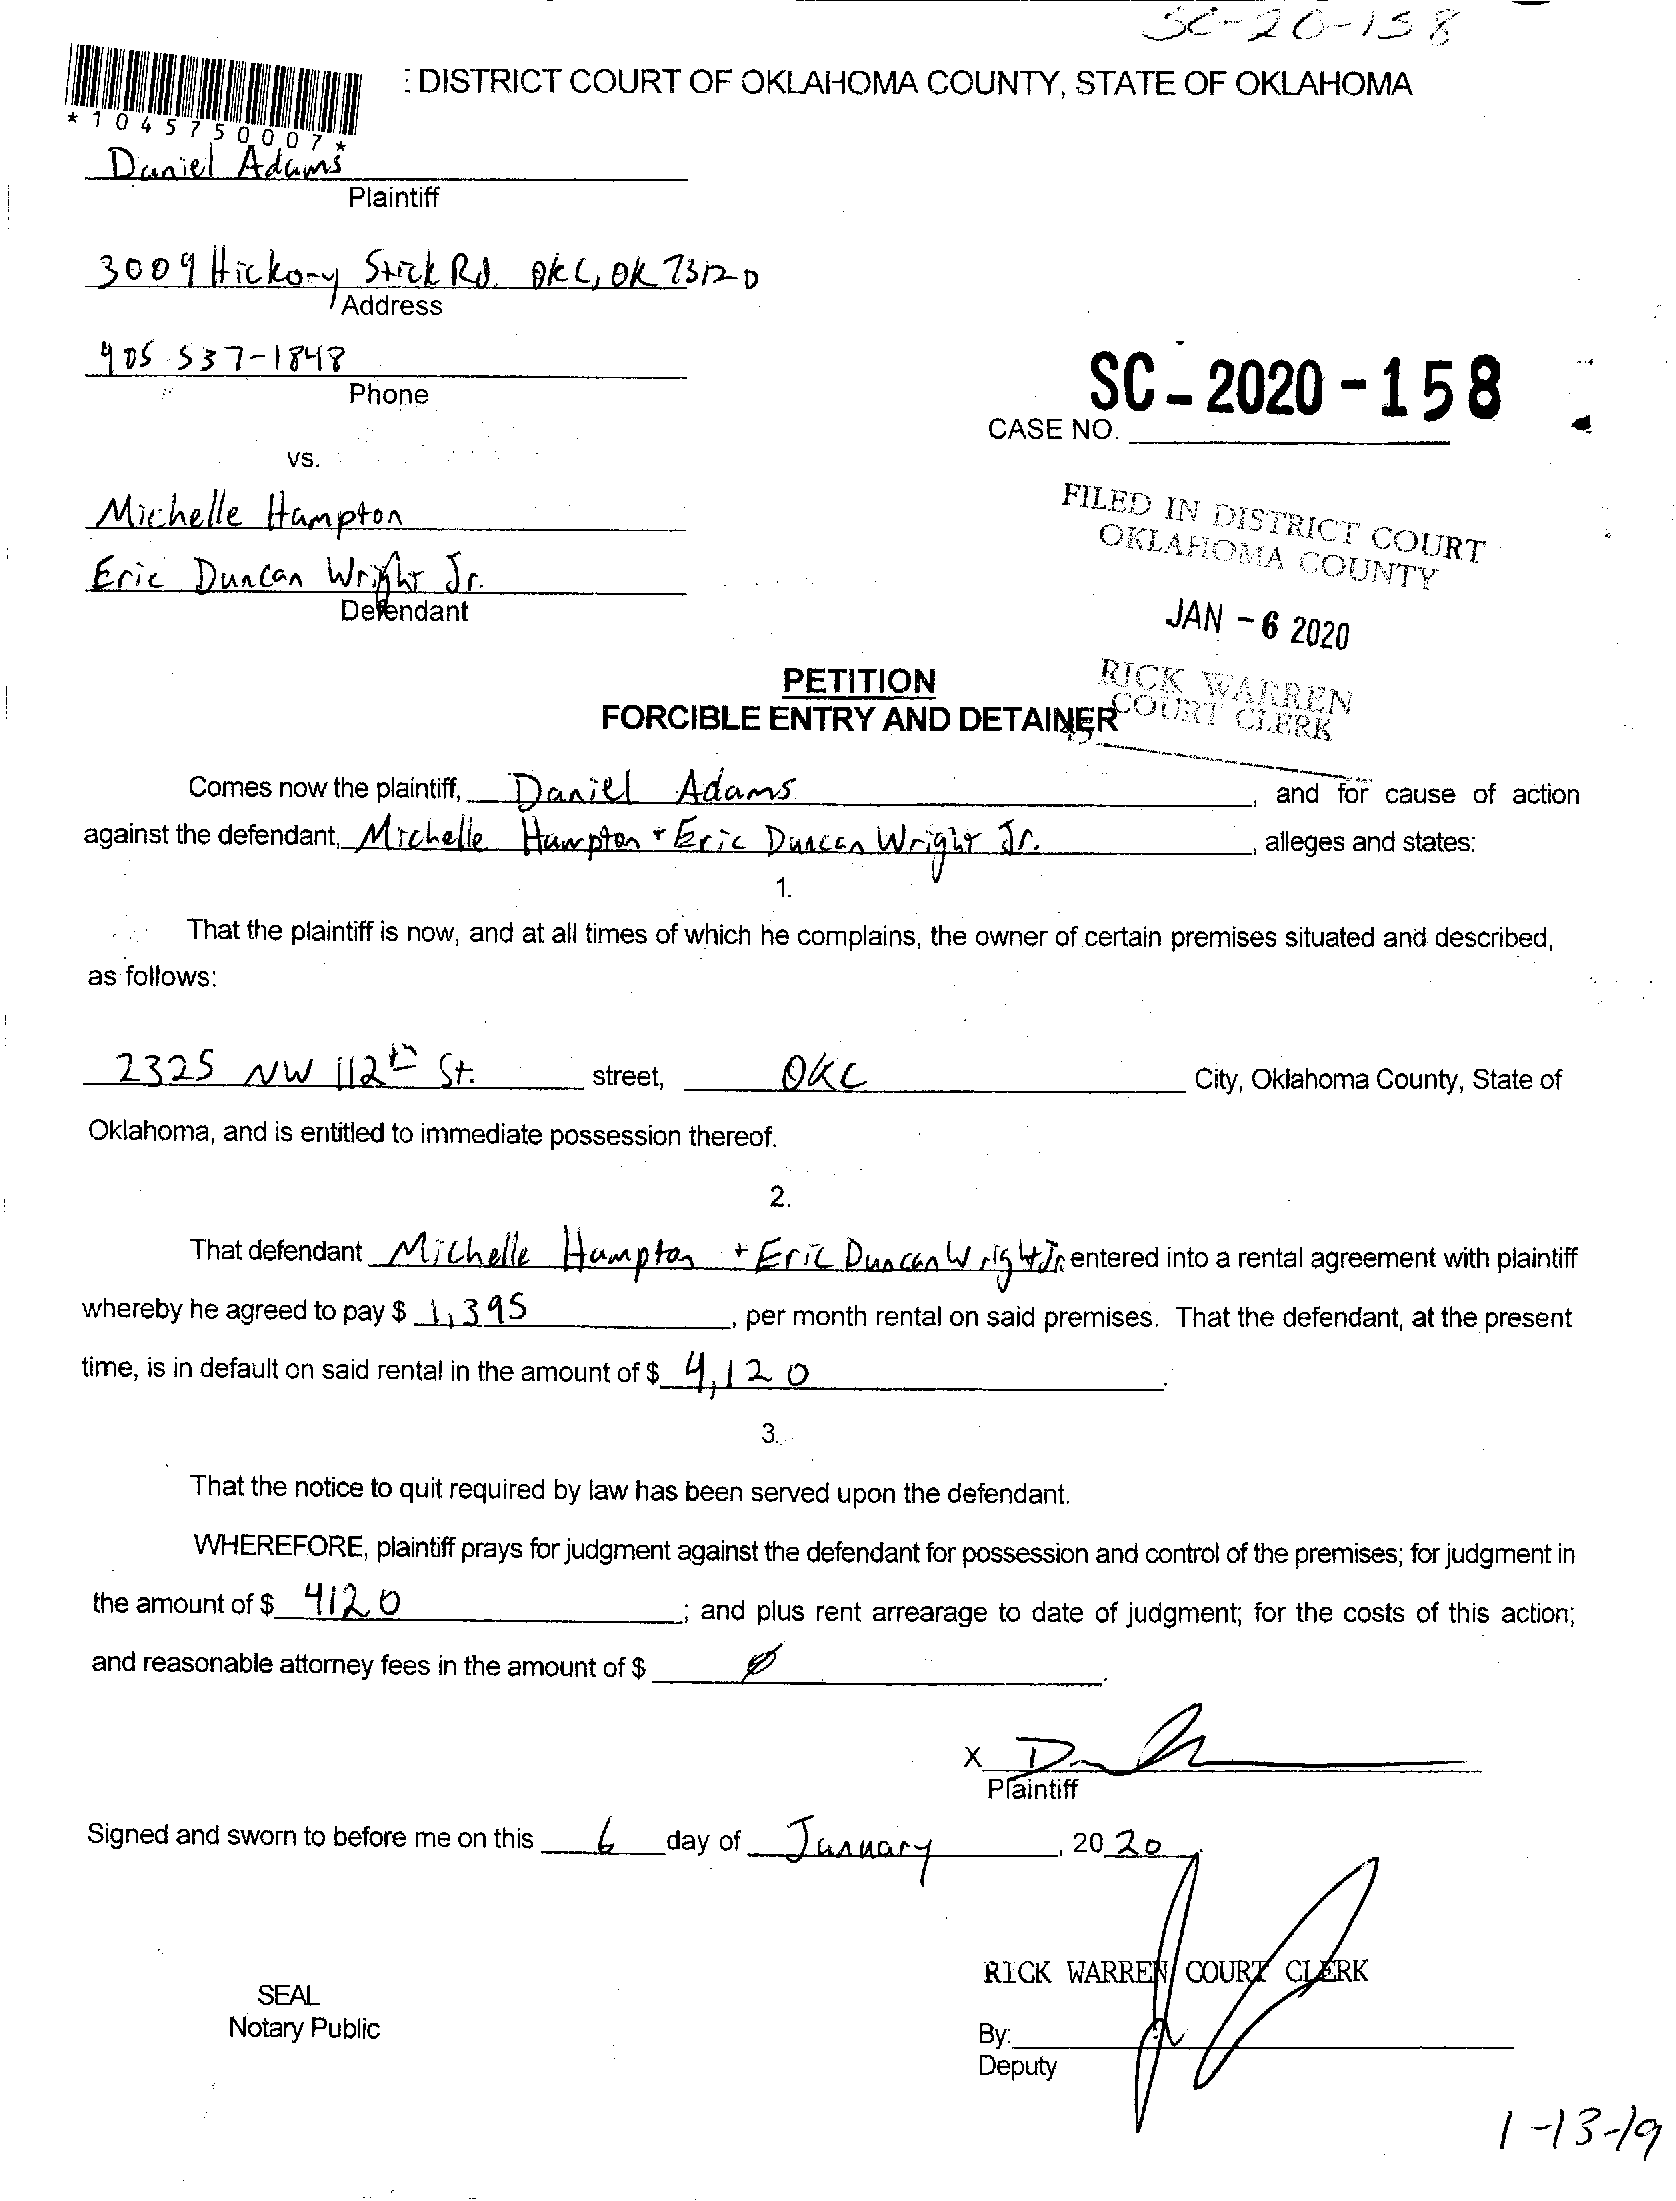 SC-20-158
: DISTRICT COURT OF OKLAHOMA COUNTY, STATE OF OKLAHOMA
*1045750007*
Daniel Adams
Plaintiff
3009 Hickory Stick Rd. OKC, OK 73120
Address
405 537-1848
Phone
SC-2020-158
CASE NO.
vs.
Michelle Hampton
Eric Duncan Wright Jr.
Defendant
FILED IN DISTRICT COURT
OKLAHOMA COUNTY
JAN -6 2020
RICK WARREN
COURT CLERK
PETITION
FORCIBLE ENTRY AND DETAINER
Comes now the plaintiff, Daniel Adams, and for cause of action
against the defendant, Michelle Hampton + Eric Duncan Wright Jr., alleges and states:
1.
That the plaintiff is now, and at all times of which he complains, the owner of certain premises situated and described,
as follows:
2325 NW 112th St. street, OKC City, Oklahoma County, State of
Oklahoma, and is entitled to immediate possession thereof.
2.
That defendant Michelle Hampton + Eric Duncan Wright Jr. entered into a rental agreement with plaintiff
whereby he agreed to pay $ 1,395, per month rental on said premises. That the defendant, at the present
time, is in default on said rental in the amount of $ 4,120.
3.
That the notice to quit required by law has been served upon the defendant.
WHEREFORE, plaintiff prays for judgment against the defendant for possession and control of the premises; for judgment in
the amount of $ 4120; and plus rent arrearage to date of judgment; for the costs of this action;
and reasonable attorney fees in the amount of $ Ø.
X
Plaintiff
Signed and sworn to before me on this 6 day of January, 2020
RICK WARREN COURT CLERK
SEAL
Notary Public
By:
Deputy
1-13-19